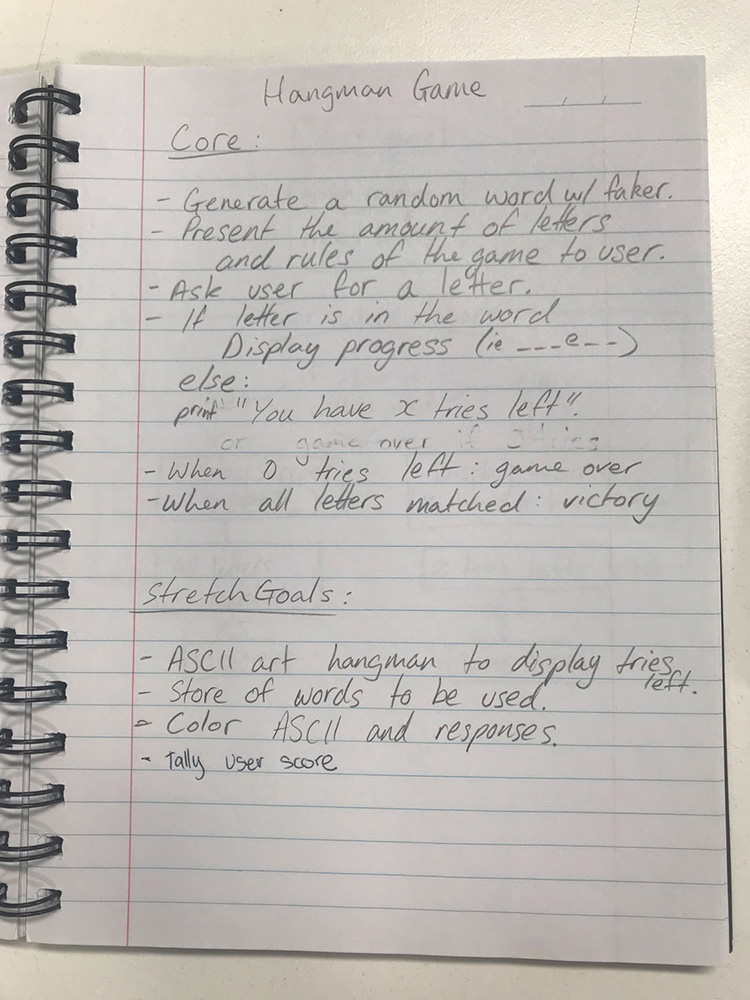 Hangman Game
Core:
- Generate a random word w/ faker.
- Present the amount of letters
and rules of the game to user.
- Ask user for a letter.
- If letter is in the word
Display progress (ie ___e__)
else:
print "You have x tries left".
or game over if 0 tries
- When 0 tries left: game over
- When all letters matched: victory
Stretch Goals:
- ASCII art hangman to display tries
left.
- Store of words to be used.
- Color ASCII and responses.
- Tally user score